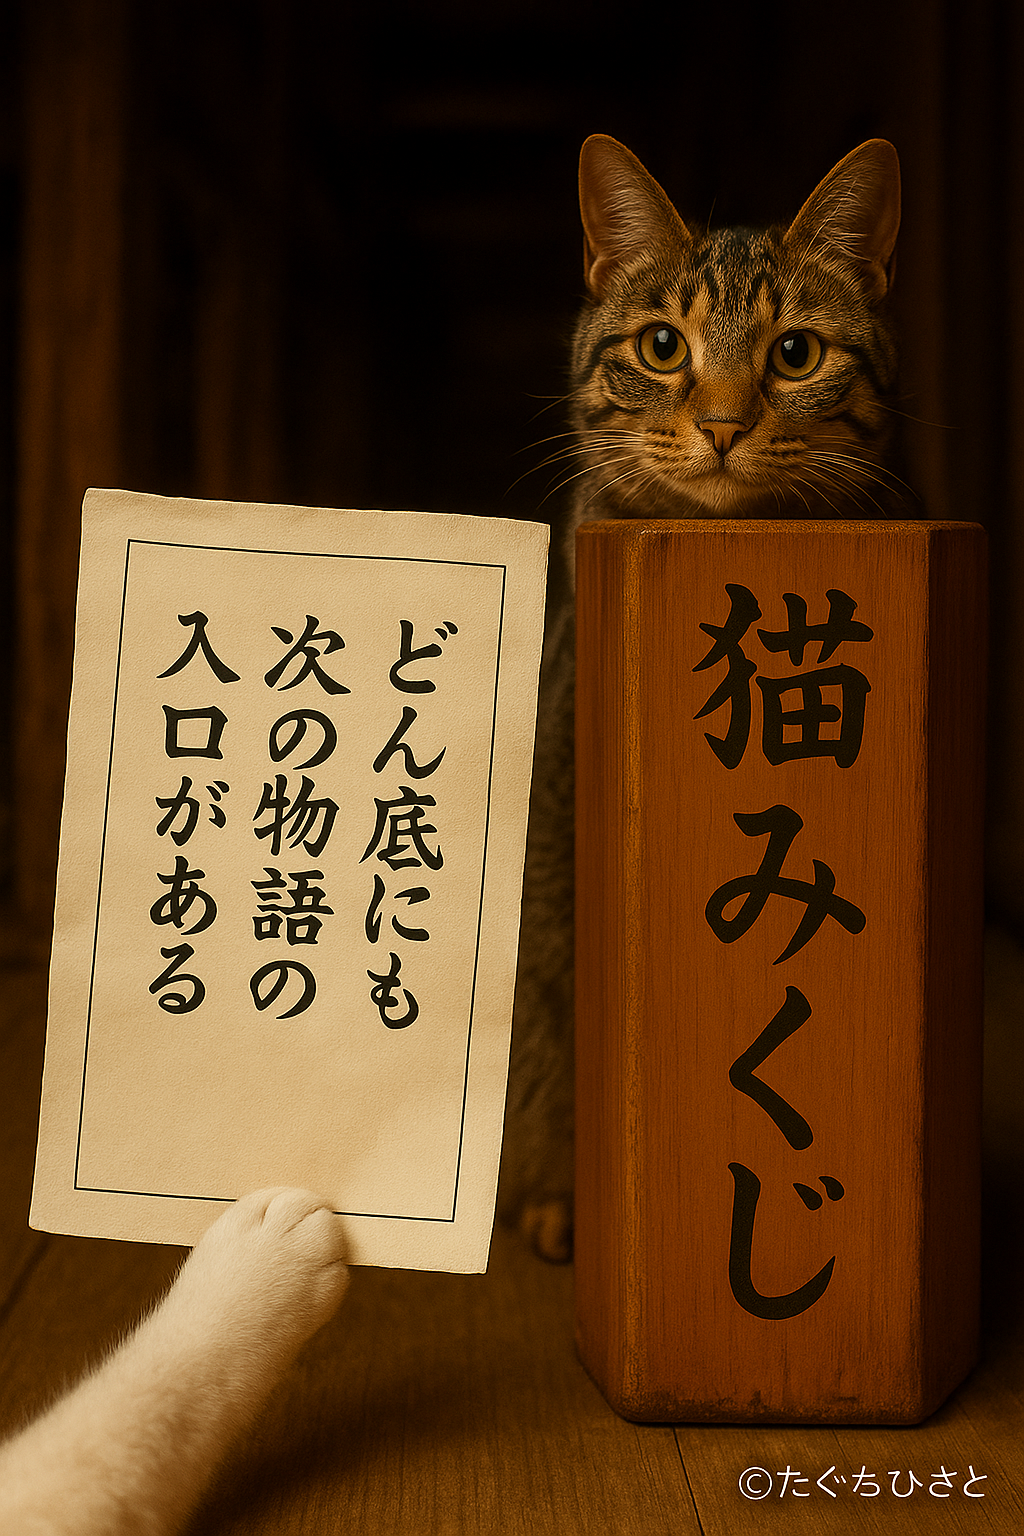 どん底にも
次の物語の
入口がある
猫みくじ
©たぐちひさと